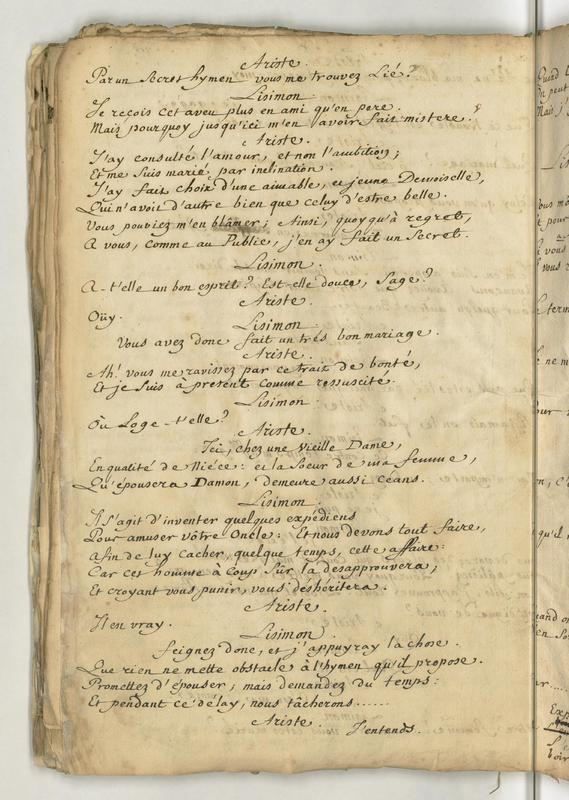 Ariste.
Par un Secret hymen vous me trouvez Lié?
Lisimon.
Je reçois cet aveu plus en ami qu'en pere.
Mais pourquoy jusqu'ici m'en avoir fait mistere?
Ariste.
J'ay consulté l'amour, et non l'ambition;
Et me Suis marié par inclination.
J'ay fait choix d'une aimable, et jeune Demoiselle,
Qui n'avoit d'autre bien que celuy d'estre belle.
Vous pouviez m'en blâmer; Ainsi, quoyqu'à regret,
A vous, comme au Public, j'en ay fait un Secret.
Lisimon.
A-t'elle un bon esprit? Est-elle douce, Sage?
Ariste.
Oüy.
Lisimon.
Vous avez donc fait un trés bon mariage.
Ariste.
Ah! vous me ravissez par ce trait de bonté,
Et je Suis à present comme ressuscité.
Lisimon.
Où Loge-t'elle?
Ariste.
Ici, chez une Vieille Dame,
En qualité de Niéce: et la Soeur de ma femme,
Qu'épousera Damon, demeure aussi ceans.
Lisimon.
Il s'agit d'inventer quelques expédiens
Pour amuser vôtre Oncle: Et nous devons tout faire,
Afin de luy Cacher, quelque temps, cette affaire:
Car cet homme à Coup Sûr la desapprouvera;
Et croyant vous punir, vous deshéritera.
Ariste.
Il en vray.
Lisimon.
Feignez donc, et j'appuyray la chose.
Que rien ne mette obstacle à l'hymen qu'il propose.
Promettez d'épouser; mais demandez du temps:
Et pendant ce délay, nous tâcherons......
Ariste.
J'entends.